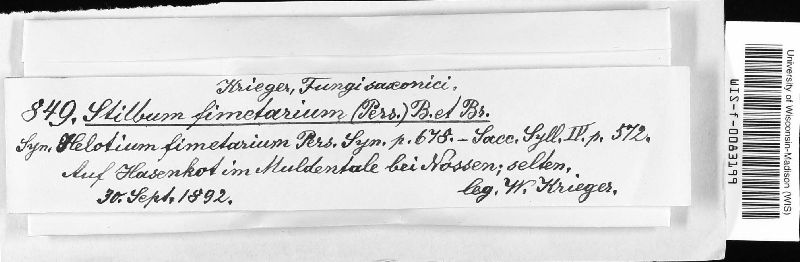 Krieger, Fungi saxonici.
849. Stilbum fimetarium (Pers.) B. et Br.
Syn. Helotium fimetarium Pers. Syn. p. 678. – Sacc. Syll. IV. p. 572.
Auf Hasenkot im Muldentale bei Nossen; selten.
30. Sept. 1892. leg. W. Krieger.
University of Wisconsin-Madison (WIS)
WIS-f-0083199